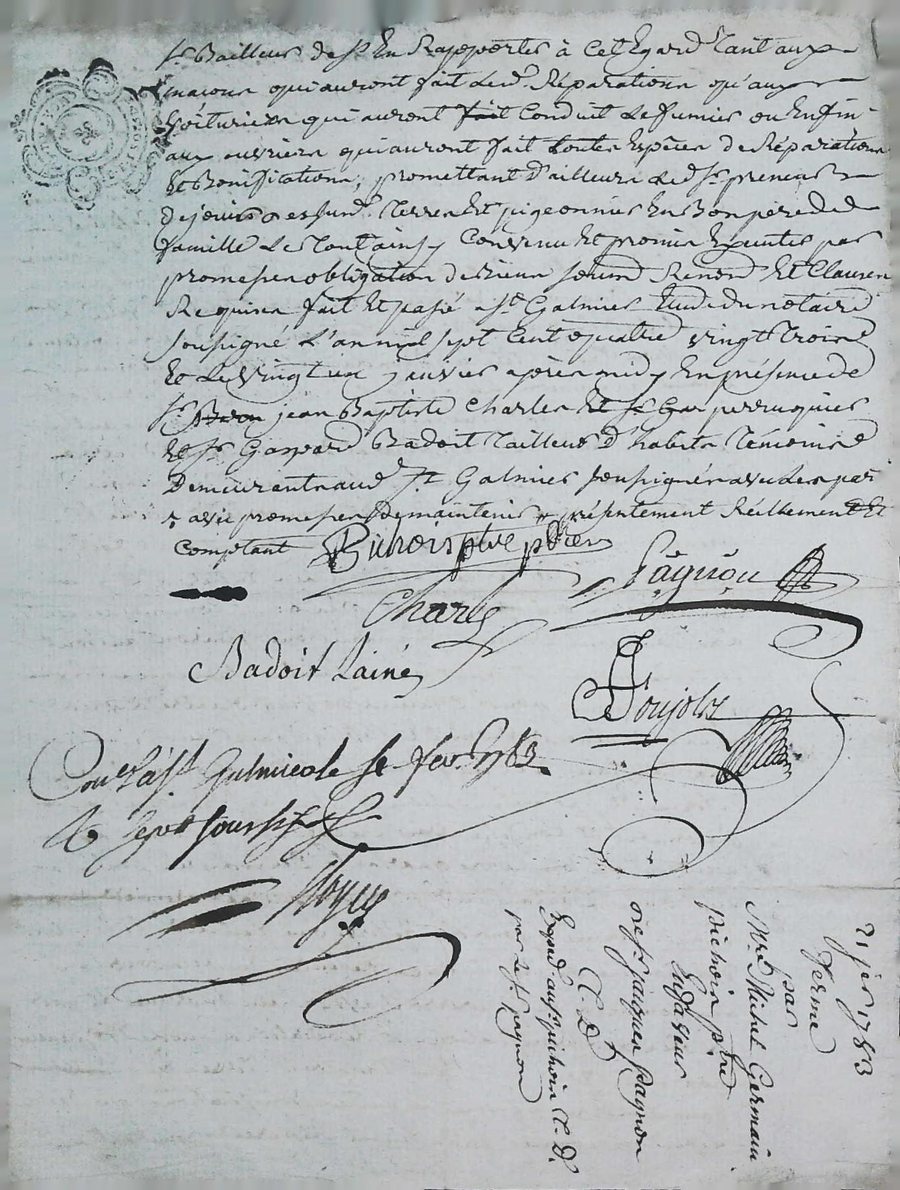 Sr Bailleur de sen Rapporter à Cet Egard tant aux
macons qui auront fait Led. Réparations qu'aux
Voituriers qui auront fait Conduit Le fumier ou Enfin
aux ouvriers qui auront fait toutes Espèces de Réparations
Et Bonifications; promettant d'ailleurs Led. Sr preneur
de jouir fond. Terres Et pigeonnier En Bon père de
famille Le Tout ainsy Convenu Et promis par
promesses obligation de Biens Renond. Et Clauses
Requises fait Et passé a St. Galmier Etude du notaire
soussigné L'an mil sept Cent quatre vingt trois
Et Le vingt un janvier après midy En présence de
Sr Jean Baptiste Charles perruquier
Et Sr Gaspard Badoit Tailleur d'habits Témoins
Demeurant aud. St Galmier soussignés avec Les par
avec promesses de maintenir présentement Réellement Et
Comptant Bichois ptre
Charles
Pagnon
Badoit Lainé
Poujols
Conlé à St Galmier le fev. 1783
21 jer 1783
ferme
par
Mre Michel Germain
Bichoin ptre
à Sr Jacques Pagnon
C. D.
Exped. aud. Sr Bichoin C. D.
par Le Sr pagnon